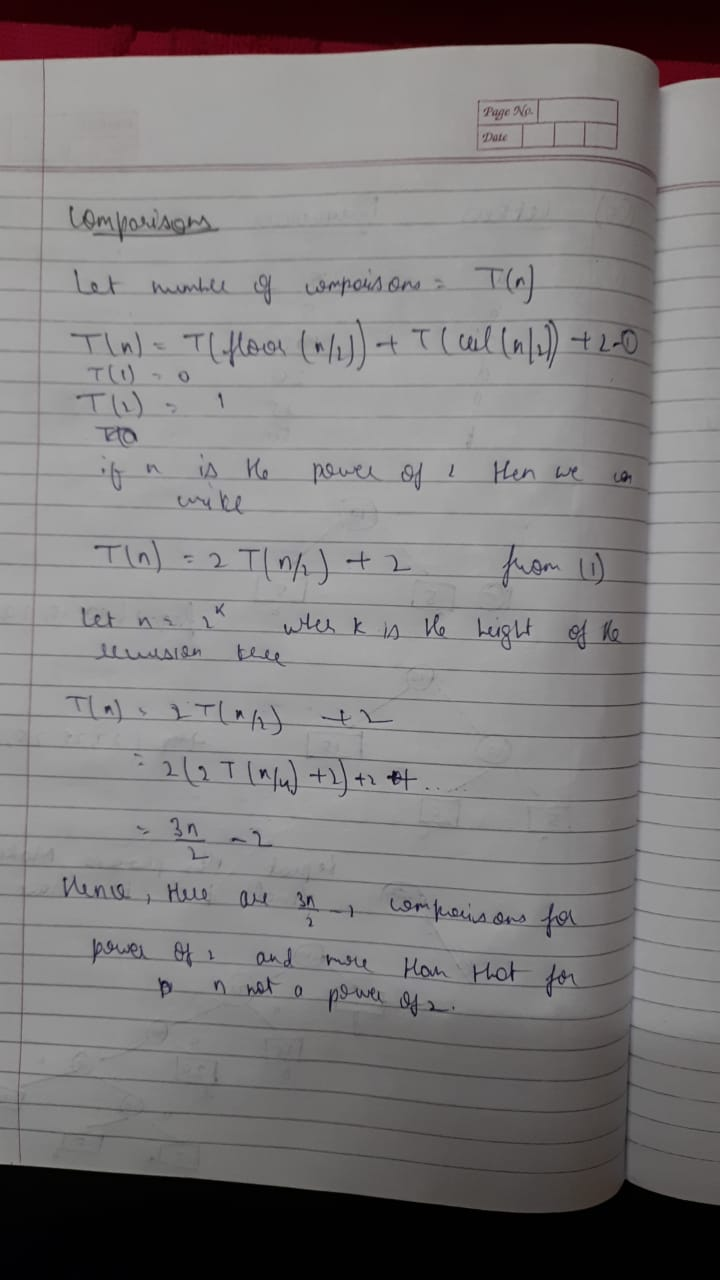 Page No.
Date
Comparisons
Let number of comparisons = T(n)
T(n) = T(floor(n/2)) + T(ceil(n/2)) + 2 -①
T(1) = 0
T(2) = 1
if n is the power of 2 then we can
write
T(n) = 2T(n/2) + 2 from (1)
Let n = 2^k where k is the height of the
recursion tree
T(n) = 2T(n/2) + 2
= 2(2T(n/4) + 2) + 2 + .....
= 3n/2 - 2
Hence, there are 3n/2 - comparisons for
power of 2 and more than that for
n not a power of 2.